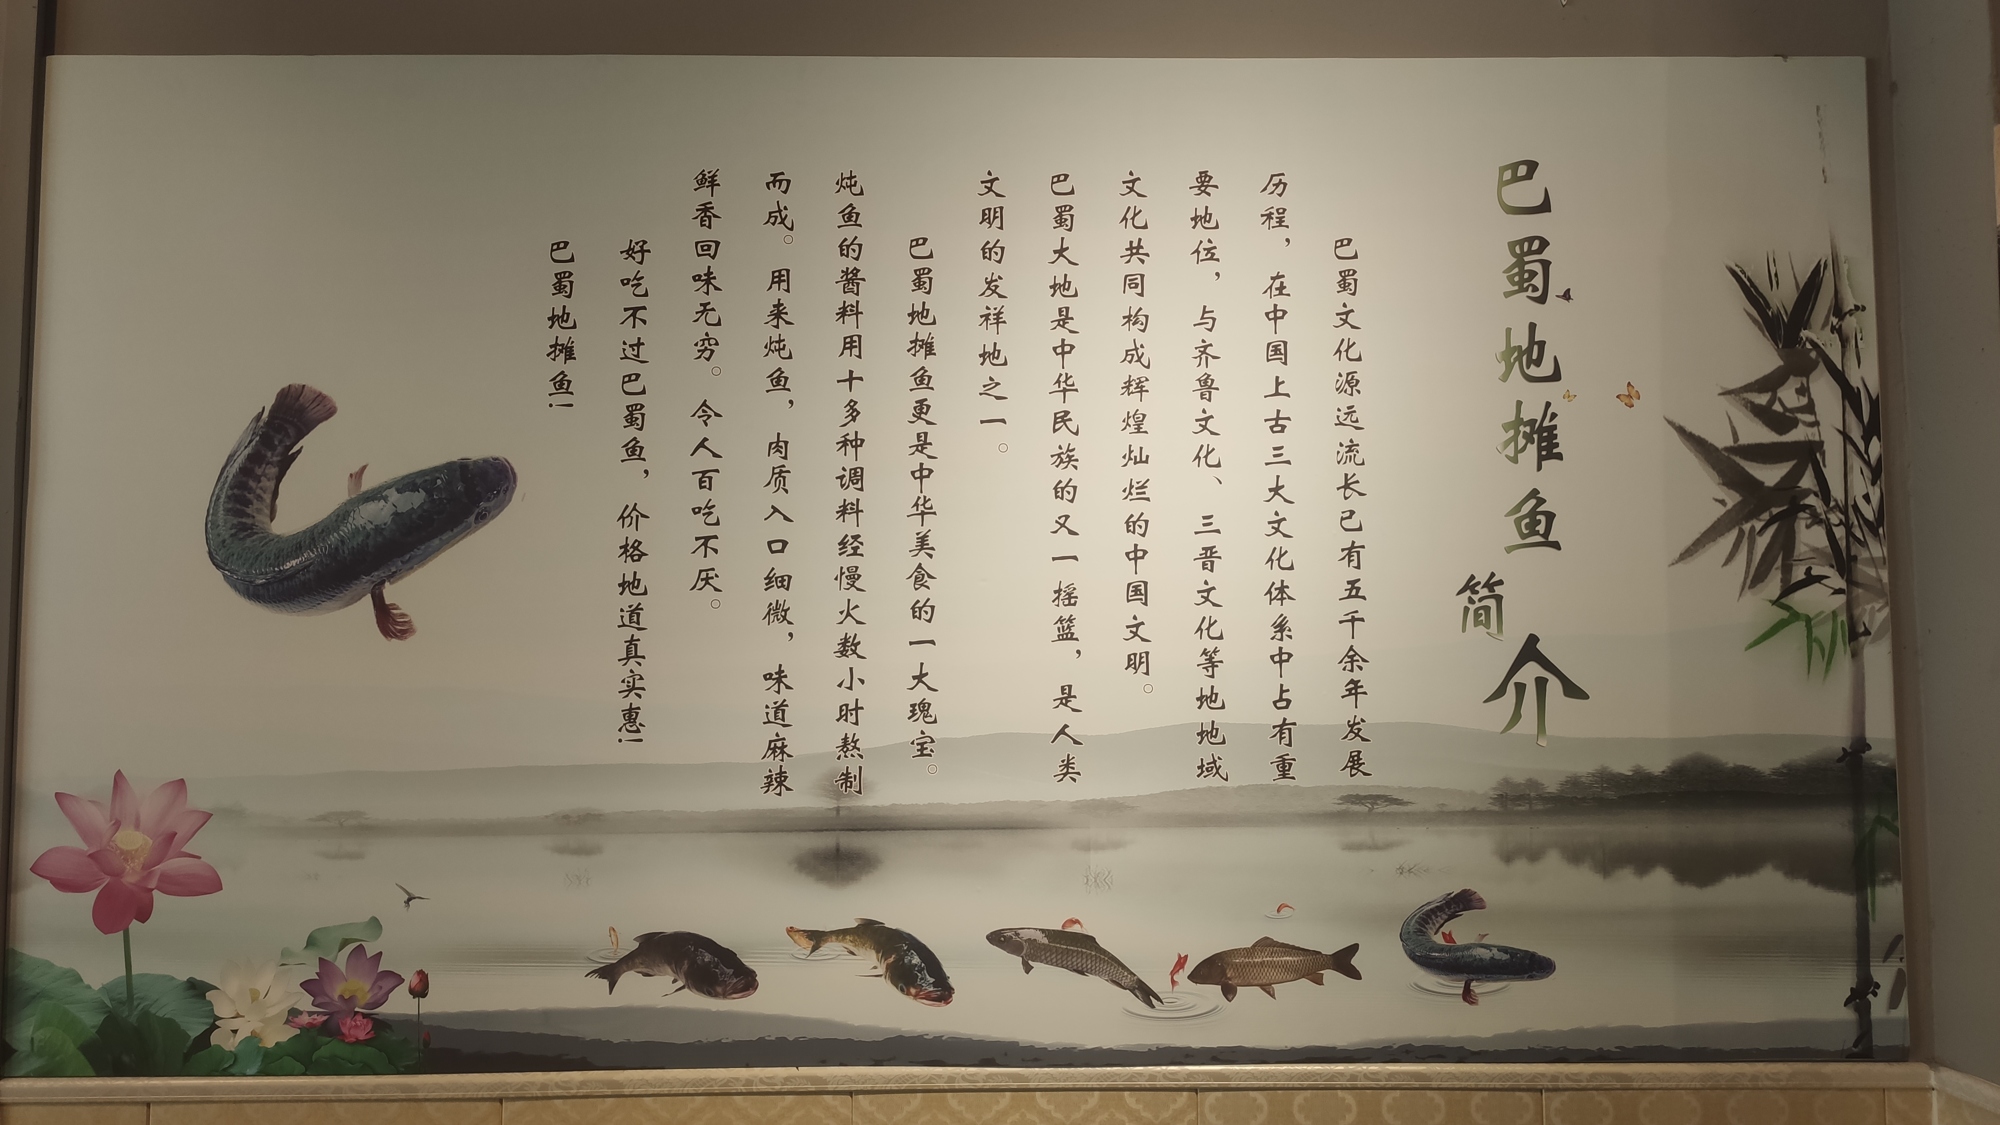 巴蜀地摊鱼简介
巴蜀文化源远流长已有五千余年发展
历程，在中国上古三大文化体系中占有重
要地位，与齐鲁文化、三晋文化等地地域
文化共同构成辉煌灿烂的中国文明。
巴蜀大地是中华民族的又一摇篮，是人类
文明的发祥地之一。
巴蜀地摊鱼更是中华美食的一大瑰宝。
炖鱼的酱料用十多种调料经慢火数小时熬制
而成。用来炖鱼，肉质入口细微，味道麻辣
鲜香回味无穷。令人百吃不厌。
好吃不过巴蜀鱼，价格地道真实惠！
巴蜀地摊鱼！